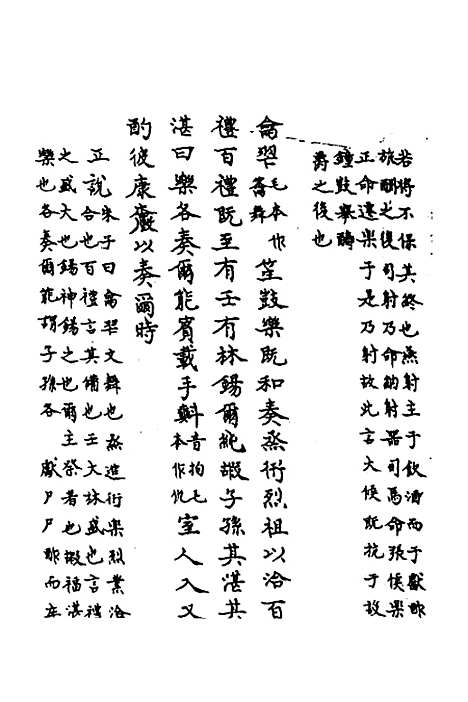 若將不保其終也燕射主于飲酒而于獻酢
旅酬之後司射乃命納射器司馬命張侯樂
正命遷樂于是乃射故此言大侯既抗于故
鐘鼓舉醻
爵之後也
籥翬毛本作籥舞笙鼓樂既和奏烝衎烈祖以洽百
禮百禮既至有壬有林錫爾純嘏子孫其湛其
湛曰樂各奏爾能賓載手㪺音拘毛本作仇室人入又
酌彼康爵以奏爾時
正說朱子曰籥翬文舞也烝進衎樂烈業洽
合也百禮言其備也壬大林盛也言禮
之盛大也錫神錫之也爾主祭者也嘏福湛
樂也各奏爾能謂子孫各獻尸尸酢而卒